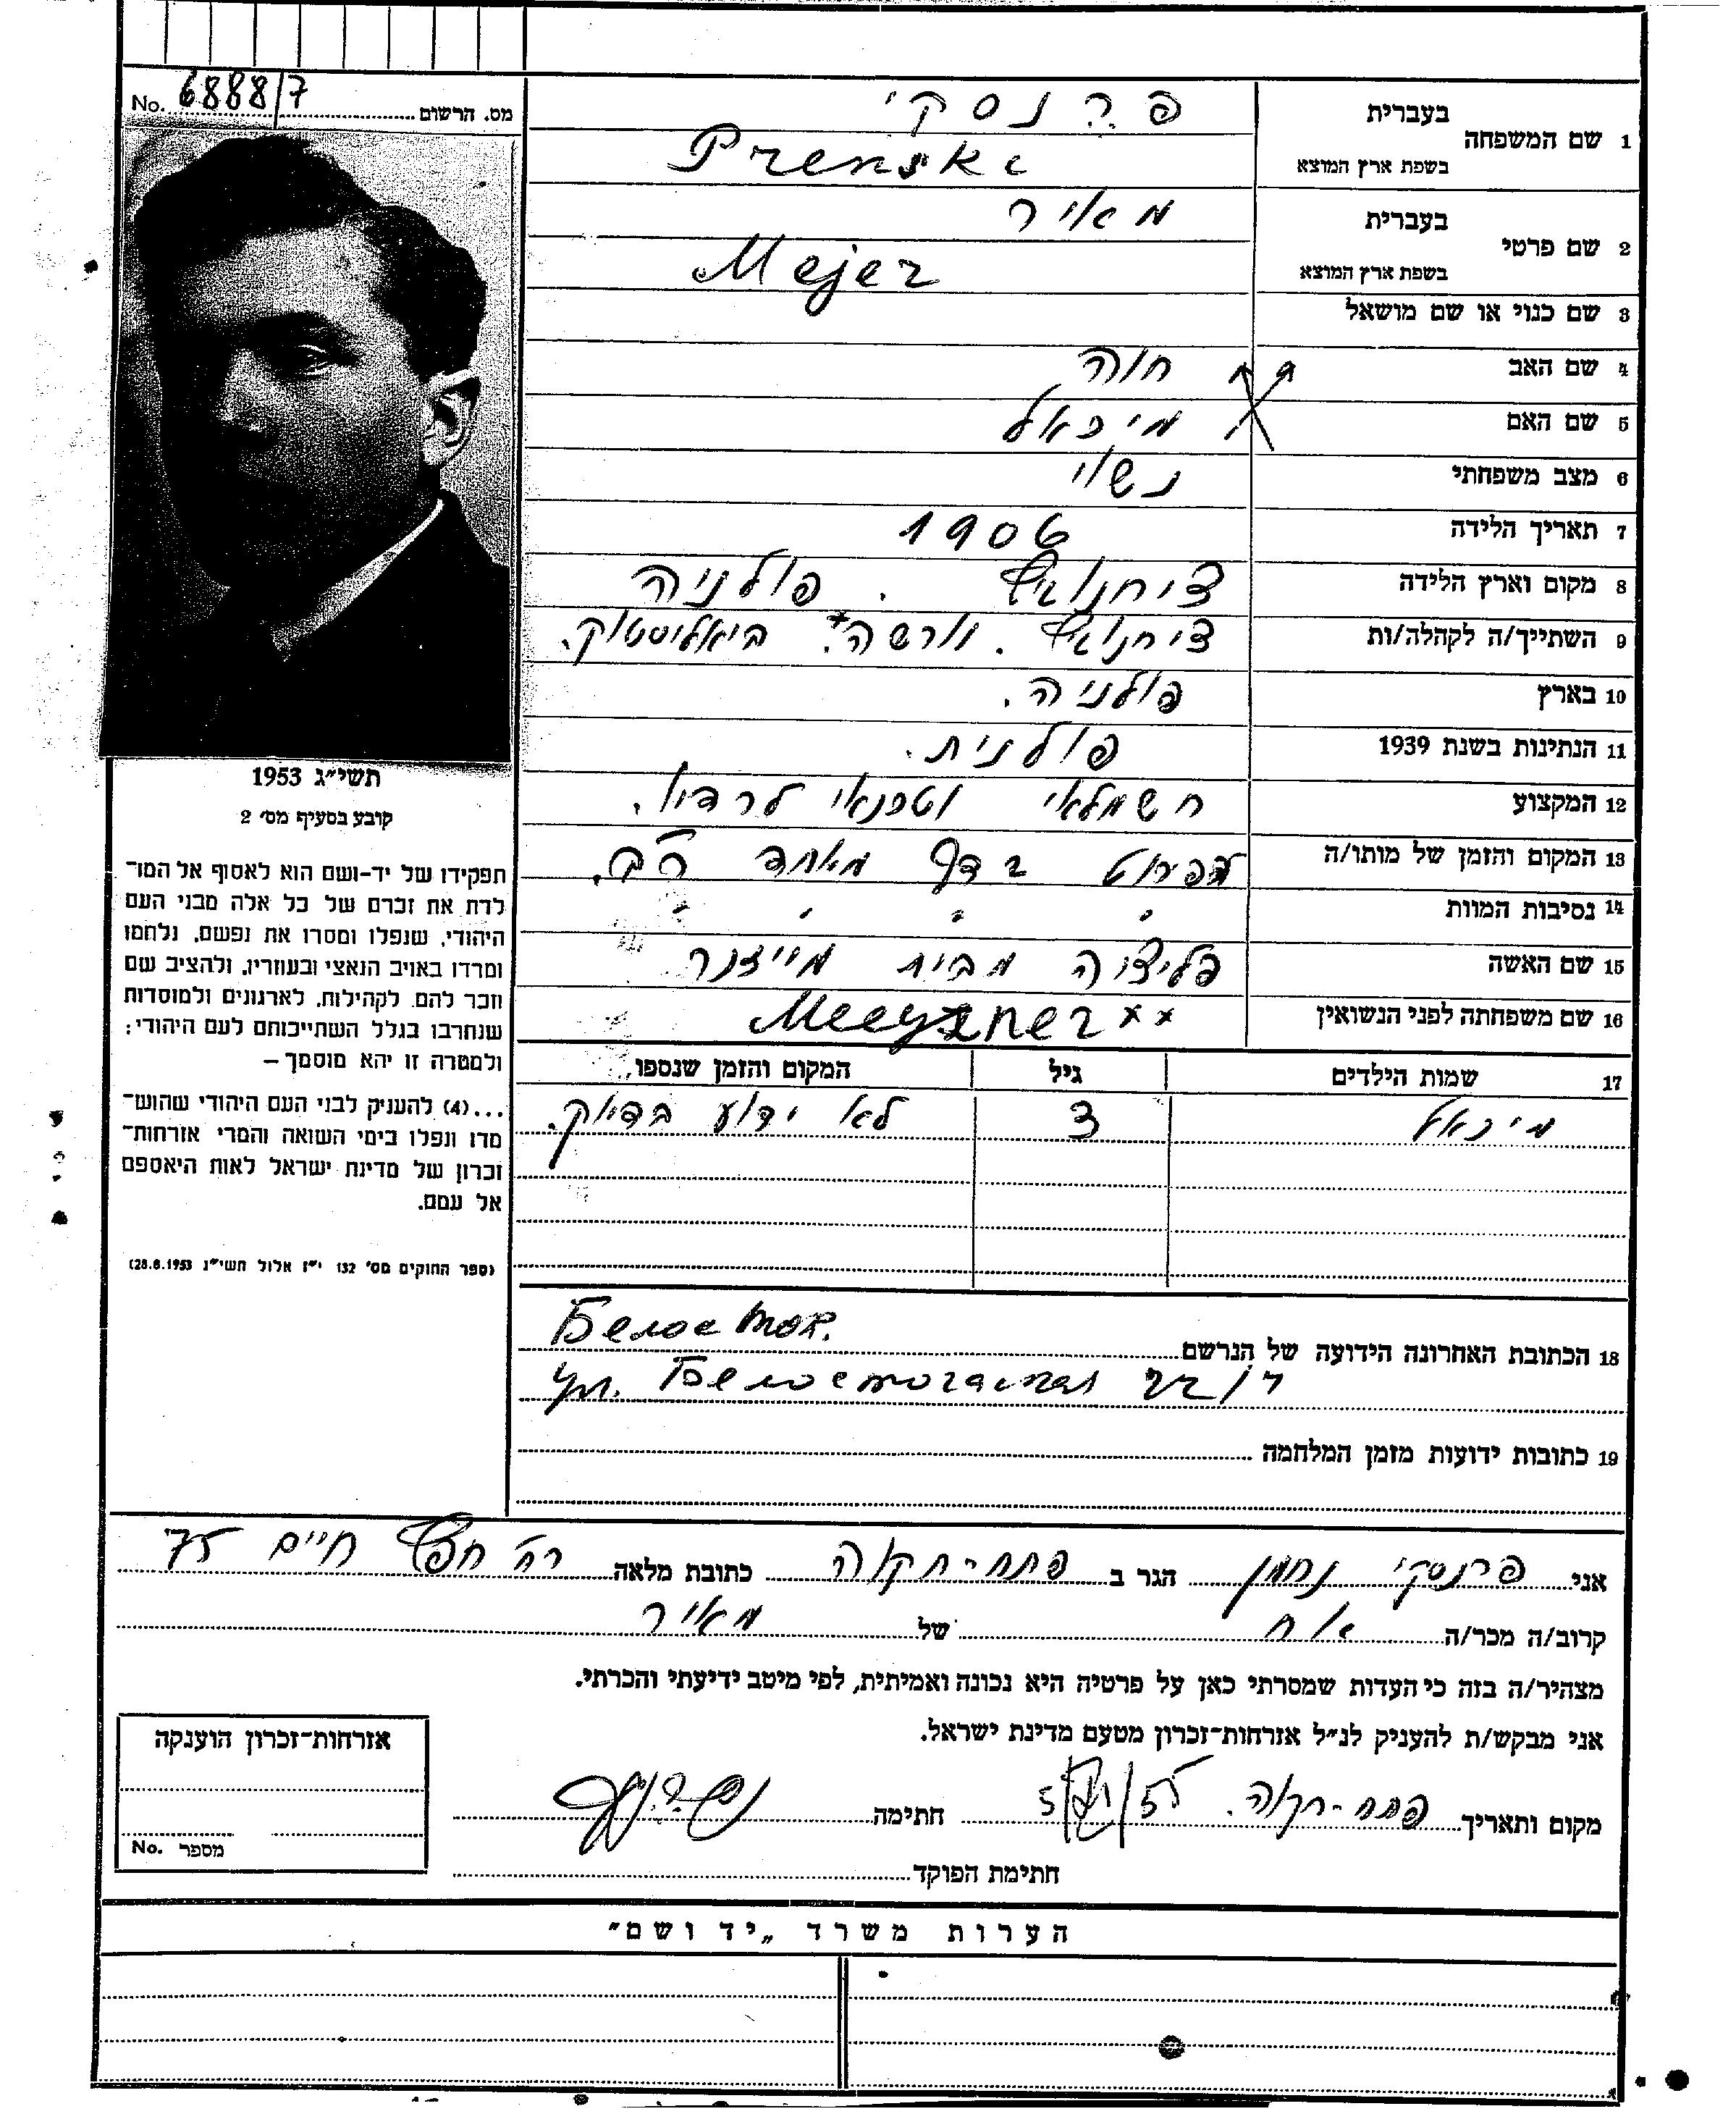 מס. הרשום No. 68887
1 שם המשפחה
בעברית פרנסקי
בשפת ארץ המוצא Prenski
2 שם פרטי
בעברית מאיר
בשפת ארץ המוצא Mejer
3 שם כנוי או שם מושאל
4 שם האב חוה
5 שם האם מיכאל
6 מצב משפחתי נשוי
7 תאריך הלידה 1906
8 מקום וארץ הלידה ציחנוביץ . פולניה
9 השתייך/ה לקהלה/ות ציחנוביץ . וורשה* . ביאליסטוק.
10 בארץ פולניה.
11 הנתינות בשנת 1939 פולנית.
12 המקצוע חשמלאי וטכנאי לרדיו.
13 המקום והזמן של מותו/ה בדף מאחד
14 נסיבות המוות " " " "
15 שם האשה פליציה מבית מייזנר
16 שם משפחתה לפני הנשואין Meeyzner **
17 שמות הילדים גיל המקום והזמן שנספו
מיכאל 3 לא ידוע בדיוק.
18 הכתובת האחרונה הידועה של הנרשם Белосток.
ул. 22/7
19 כתובות ידועות מזמן המלחמה
תשי״ג 1953
קובע בסעיף מס׳ 2
תפקידו של יד-ושם הוא לאסוף אל המו־
לדת את זכרם של כל אלה מבני העם
היהודי, שנפלו ומסרו את נפשם, נלחמו
ומרדו באויב הנאצי ובעוזריו, ולהציב שם
וזכר להם, לקהילות, לארגונים ולמוסדות
שנחרבו בגלל השתייכותם לעם היהודי;
ולמטרה זו יהא מוסמך —
...(4) להעניק לבני העם היהודי שהוש־
מדו ונפלו בימי השואה והמרי אזרחות־
זכרון של מדינת ישראל לאות היאספם
אל עמם.
(ספר החוקים מס׳ 132 י״ז אלול תשי״ג 28.8.1953)
אני פרנסקי נחמן הגר ב פתח-תקוה כתובת מלאה רח׳ חפץ חיים 75
קרוב/ה מכר/ה אח של מאיר
מצהיר/ה בזה כי העדות שמסרתי כאן על פרטיה היא נכונה ואמיתית, לפי מיטב ידיעתי והכרתי.
אני מבקש/ת להעניק לנ״ל אזרחות־זכרון מטעם מדינת ישראל.
מקום ותאריך פתח-תקוה. חתימה
חתימת הפוקד
אזרחות־זכרון הוענקה
מספר No.
הערות משרד „יד ושם״